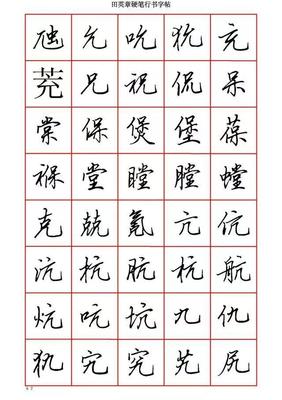 田英章硬笔行书字帖
允 吮 狁 充
茺 兄 祝 侃 呆
保 煲 堡 葆
褓 堂 瞠 膛 螳
克 兢 氪 亢 伉
沆 肮 杭 航
炕 吭 坑 九 仇
犰 宄 究 艽 尻